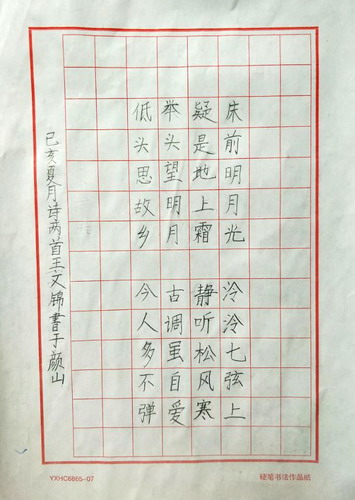 床前明月光
疑是地上霜
举头望明月
低头思故乡
泠泠七弦上
静听松风寒
古调虽自爱
今人多不弹
己亥夏月诗两首王文锦書于颜山
YXHC6865-07
硬笔书法作品纸